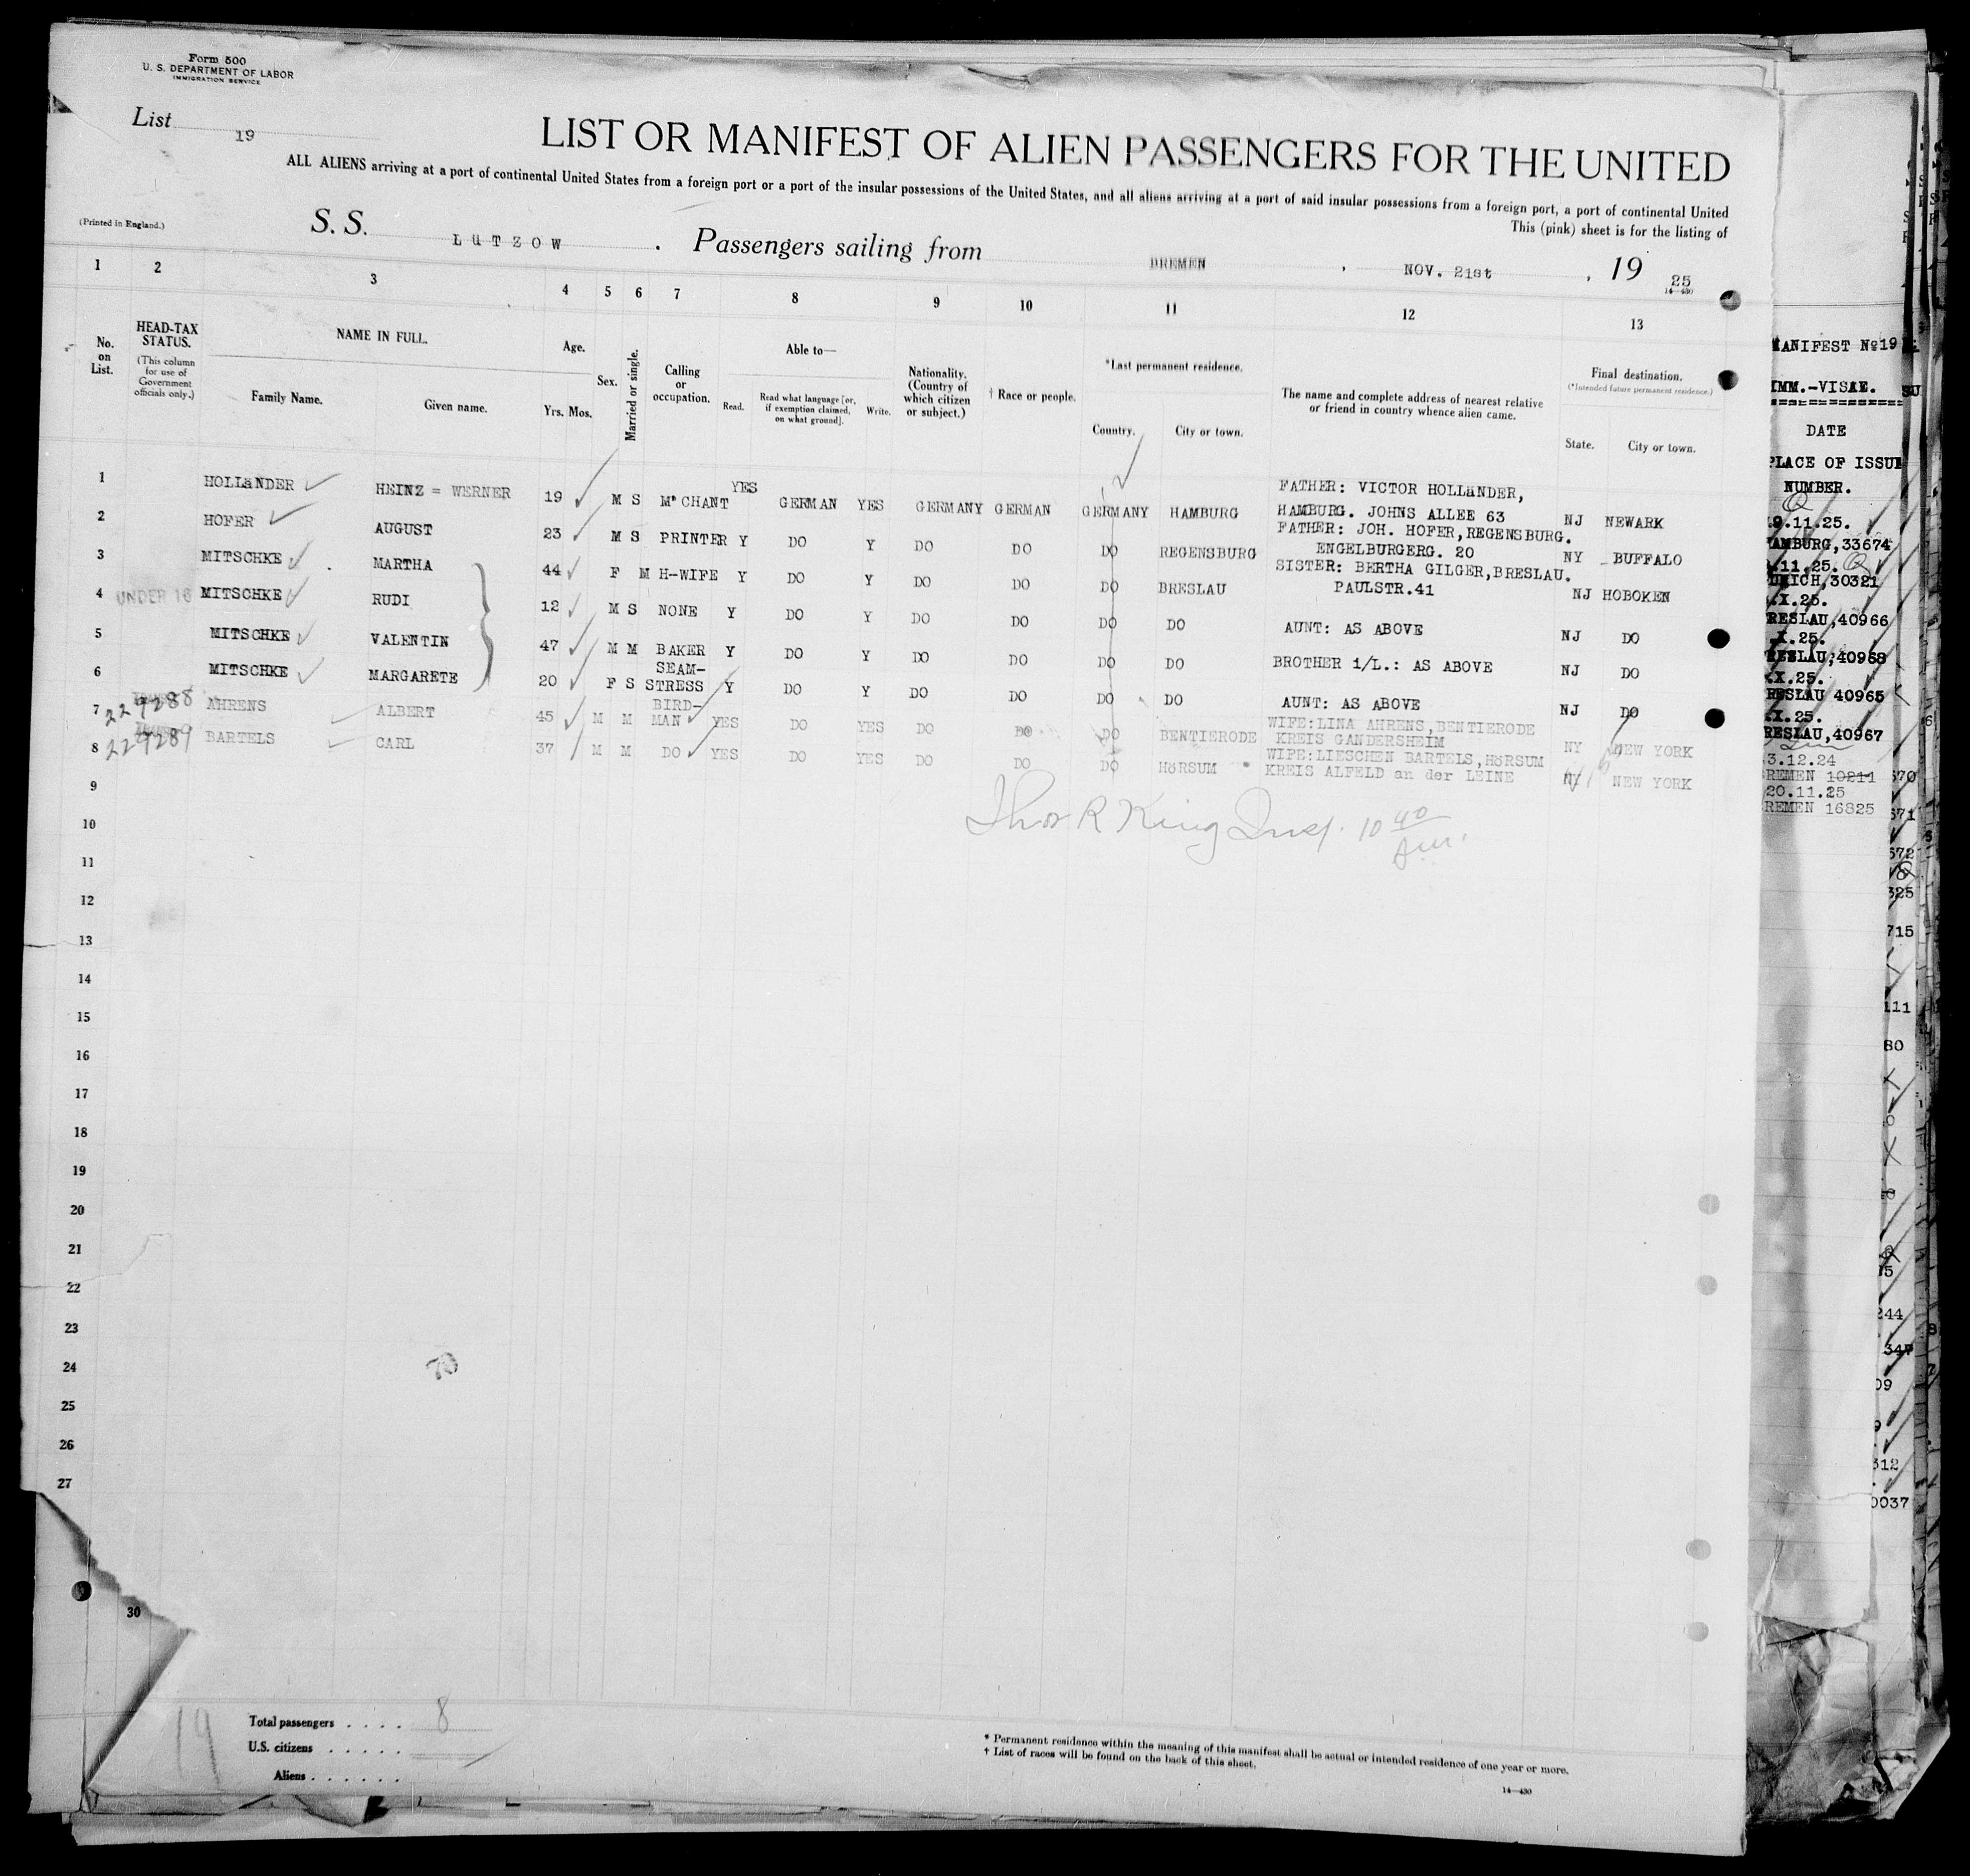 Form 500
U. S. DEPARTMENT OF LABOR
IMMIGRATION SERVICE
List 19
LIST OR MANIFEST OF ALIEN PASSENGERS FOR THE UNITED
ALL ALIENS arriving at a port of continental United States from a foreign port or a port of the insular possessions of the United States, and all aliens arriving at a port of said insular possessions from a foreign port, a port of continental United
This (pink) sheet is for the listing of
(Printed in England.)
S. S. LüTZOW . Passengers sailing from BREMEN , NOV. 21st , 19 25
14—430
1 2 3 4 5 6 7 8 9 10 11 12 13
No. on List.
HEAD-TAX STATUS.
(This column for use of Government officials only.)
NAME IN FULL.
Family Name. Given name.
Age.
Yrs. Mos.
Sex.
Married or single.
Calling or occupation.
Able to—
Read. Read what language [or, if exemption claimed, on what ground]. Write.
Nationality. (Country of which citizen or subject.)
† Race or people.
*Last permanent residence.
Country. City or town.
The name and complete address of nearest relative or friend in country whence alien came.
Final destination.
(*Intended future permanent residence.)
State. City or town.
1 HOLLäNDER HEINZ = WERNER 19 M S M'CHANT YES GERMAN YES GERMANY GERMAN GERMANY HAMBURG FATHER: VICTOR HOLLäNDER,
HAMBURG. JOHNS ALLEE 63 NJ NEWARK
2 HOFER AUGUST 23 M S PRINTER Y DO Y DO DO DO REGENSBURG FATHER: JOH. HOFER,REGENSBURG.
ENGELBURGERG. 20 NY BUFFALO
3 MITSCHKE MARTHA 44 F M H-WIFE Y DO Y DO DO DO BRESLAU SISTER: BERTHA GILGER,BRESLAU.
PAULSTR.41 NJ HOBOKEN
4 UNDER 16 MITSCHKE RUDI 12 M S NONE Y DO Y DO DO DO DO AUNT: AS ABOVE NJ DO
5 MITSCHKE VALENTIN 47 M M BAKER Y DO Y DO DO DO DO BROTHER i/L.: AS ABOVE NJ DO
6 MITSCHKE MARGARETE 20 F S SEAM-STRESS Y DO Y DO DO DO DO AUNT: AS ABOVE NJ DO
7 229288 AHRENS ALBERT 45 M M BIRD-MAN YES DO YES DO DO DO BENTIERODE WIFE:LINA AHRENS,BENTIERODE
KREIS GANDERSHEIM NY NEW YORK
8 229289 BARTELS CARL 37 M M DO YES DO YES DO DO DO HöRSUM WIFE:LIESCHEN BARTELS,HöRSUM
KREIS ALFELD an der LEINE NY NEW YORK
9
Thos R King Insp. 10 40 am.
10
11
12
13
14
15
16
17
18
19
20
21
22
23
24
70
25
26
27
30
19
Total passengers . . . . 8
U.S. citizens . . . . .
Aliens . . . . . .
* Permanent residence within the meaning of this manifest shall be actual or intended residence of one year or more.
† List of races will be found on the back of this sheet.
14—430
MANIFEST No19
IMM.-VISAE.
DATE
PLACE OF ISSUE
NUMBER.
19.11.25.
HAMBURG,33674
.11.25.
30321
.X.25.
BRESLAU,40966
.X.25.
BRESLAU,40968
.X.25.
BRESLAU 40965
.X.25.
BRESLAU,40967
3.12.24
BREMEN 10211
20.11.25
BREMEN 16825